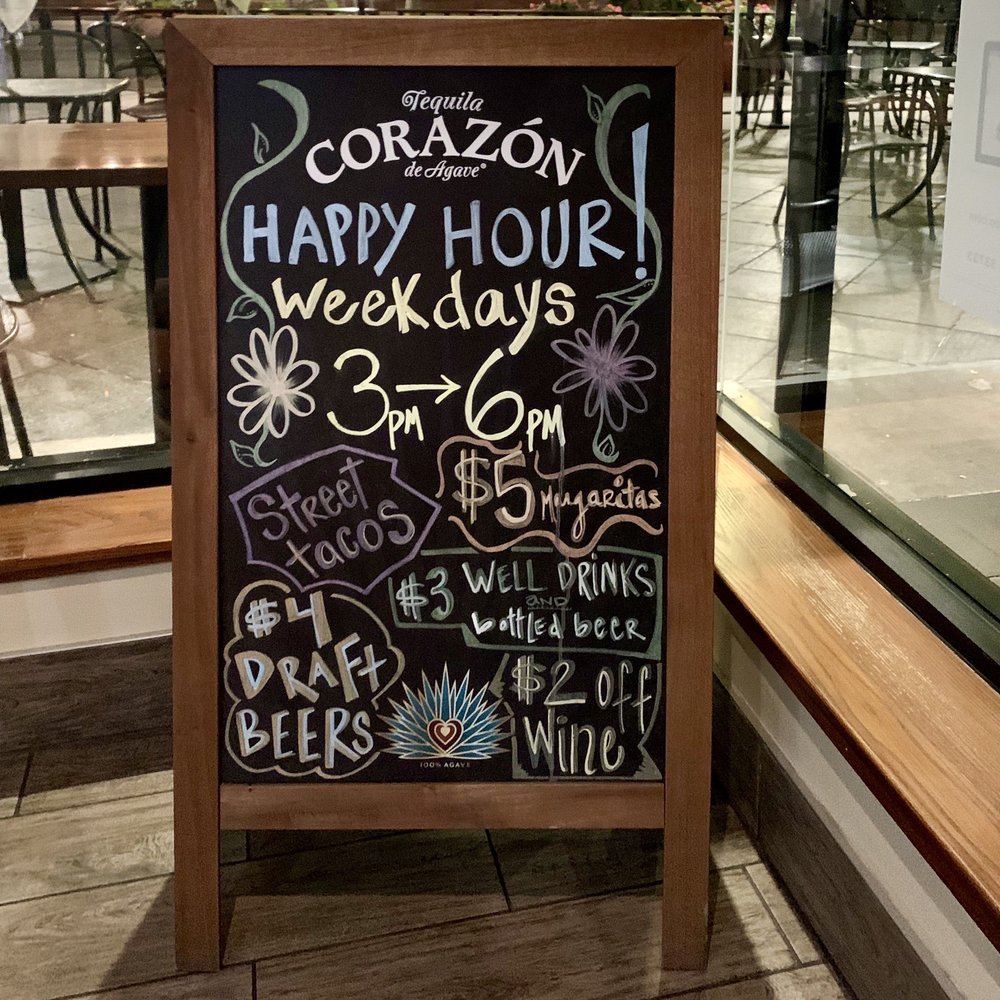 Tequila
CORAZÓN
de Agave®
HAPPY HOUR!
Weekdays
3PM → 6PM
Street
tacos
$5 Margaritas
$3 WELL DRINKS
AND
bottled beer
$4
DRAFT
BEERS
$2 off
Wine
100% AGAVE